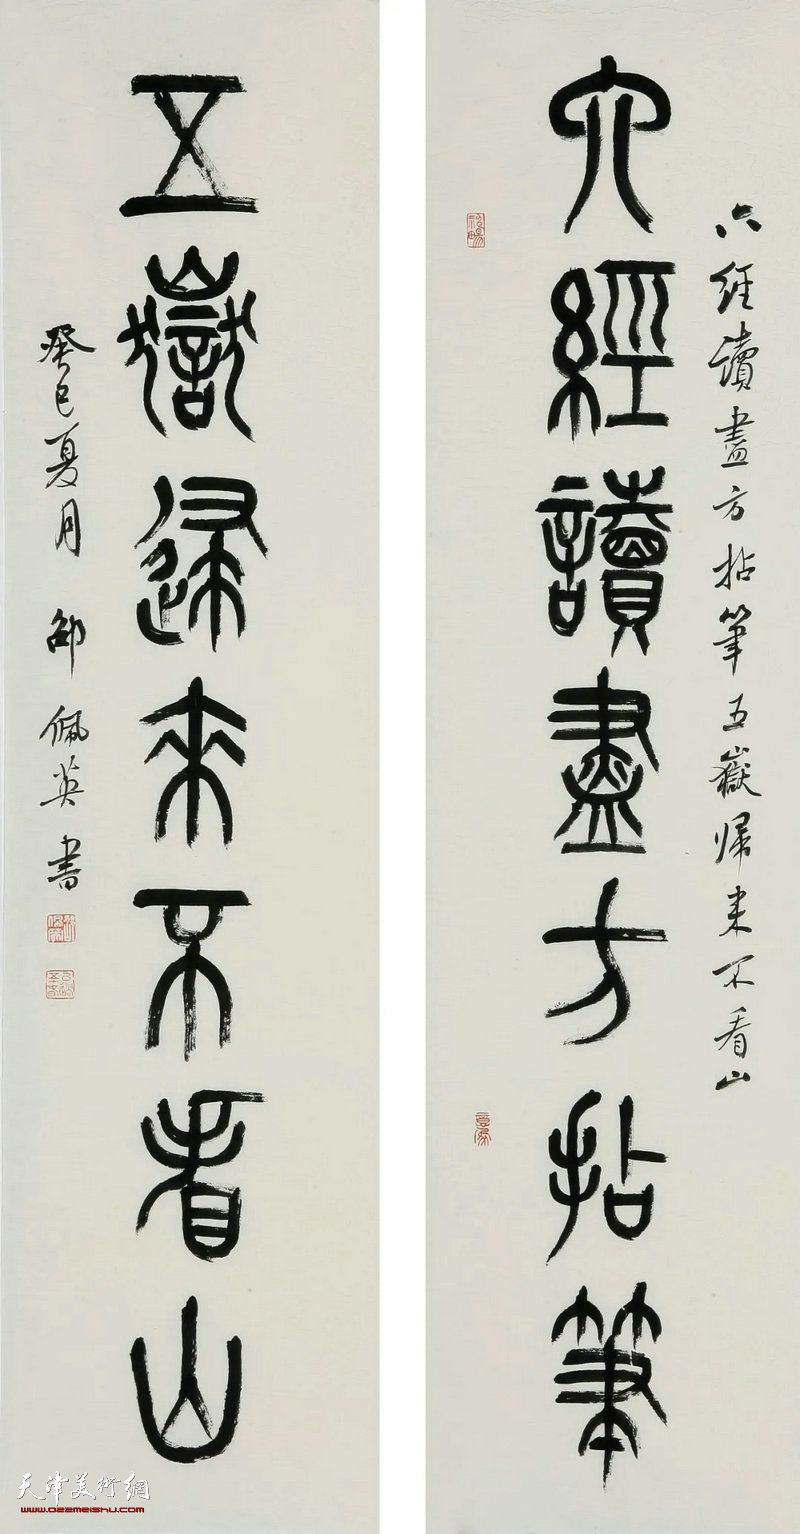 六經讀盡方拈筆
六经讀盡方拈筆五嶽帰来不看山
五嶽歸來不看山
癸巳夏月 邵佩英書
天津美術網
www.022meishu.com